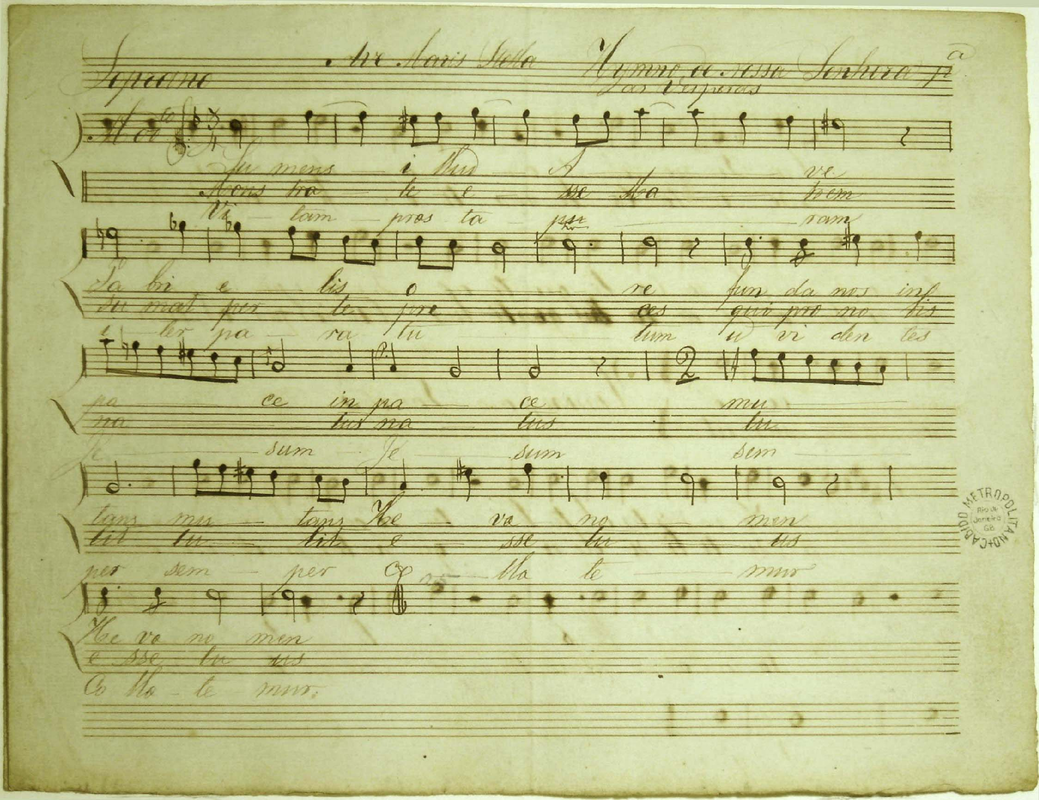 Soprano Ave Maris Stella Hymno de Nossa Senhora pª
as Vesperas
Su mens i llud A ve
Mons tra te e sse Ma trem
Vi tam præs ta pu ram
Ga bri e lis o re fun da nos in
Su mat per te pre ces qui pro no bis
i ter pa ra tu tum u vi den tes
pa ce in pa ce mu
na tus na tus tu
Je sum Je sum sem
tans mu tans He væ no men
lit tu lit e sse tu us
per sem per Co llæ te mur
He væ no men
e sse tu us
Co llæ te mur.
CABIDO METROPOLITANO
Rio de
Janeiro
GB